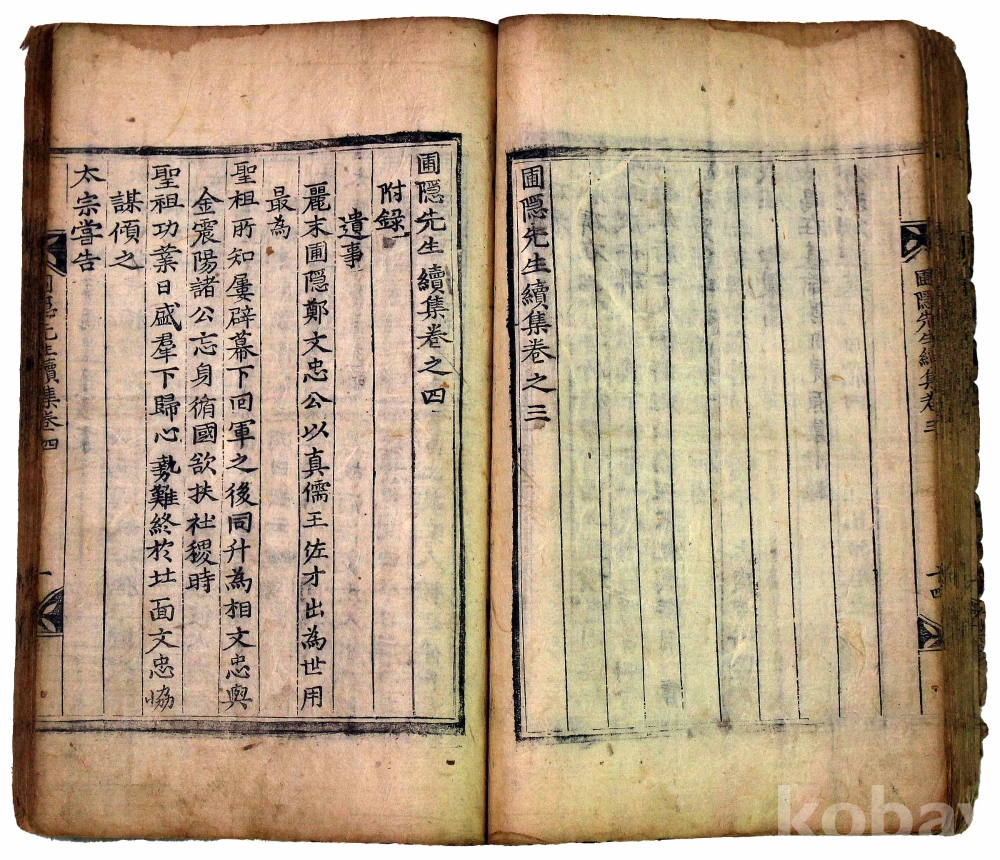 圃隠先生續集卷之三
圃隠先生續集卷三
十四
圃隠先生續集卷之四
附錄
遺事
麗末圃隠鄭文忠公以真儒王佐才出為世用
最為
聖祖所知屢辟幕下回軍之後同升為相文忠與
金震陽諸公忘身循國欲扶社稷時
聖祖功業日盛羣下歸心勢難終於北面文忠協
謀傾之
太宗嘗告
圃隠先生續集卷四
一
kobay